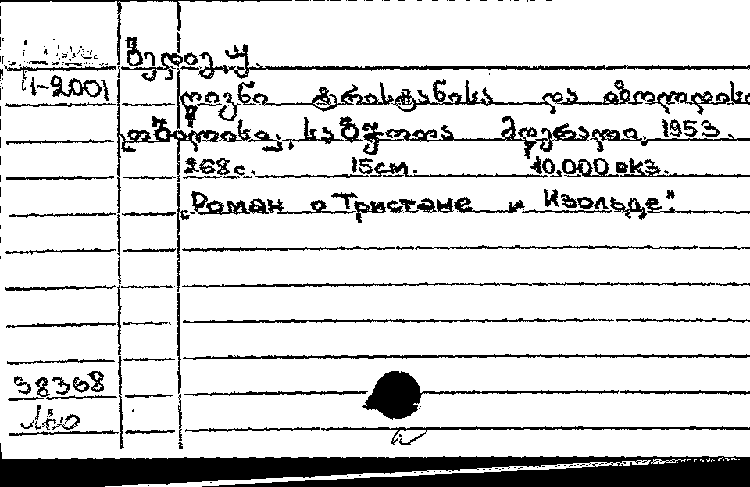 ბედიე, ჟ.
11-2001
წიგნი ტრისტანისა და იზოლდისა
თბილისი, საბჭოთა მწერალი, 1953.
268 с. 15 см. 10.000 экз.
„Роман о Тристане и Изольде".
38368